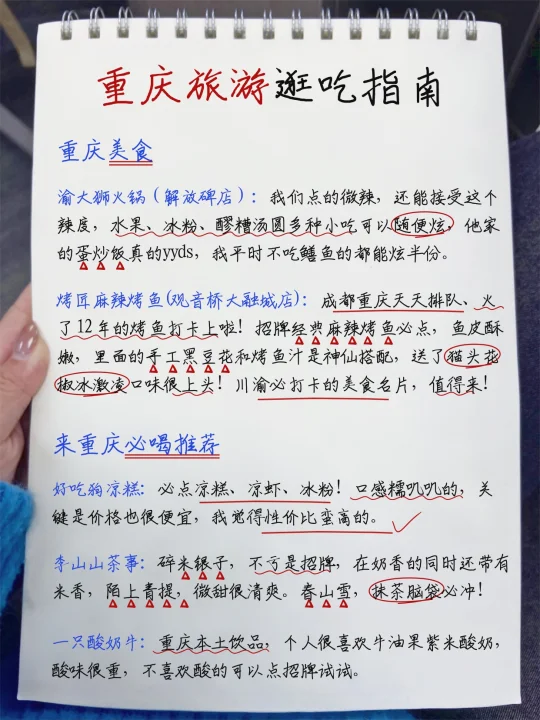 重庆旅游逛吃指南
重庆美食
渝大狮火锅(解放碑店): 我们点的微辣, 还能接受这个
辣度, 水果、冰粉、醪糟汤圆多种小吃可以随便炫, 他家
的蛋炒饭真的yyds, 我平时不吃鳝鱼的都能炫半份。
烤匠麻辣烤鱼(观音桥大融城店): 成都重庆天天排队、火
了12年的烤鱼打卡上啦! 招牌经典麻辣烤鱼必点, 鱼皮酥
嫩, 里面的手工黑豆花和烤鱼汁是神仙搭配, 送了猫头花
椒冰激凌口味很上头! 川渝必打卡的美食名片, 值得来!
来重庆必喝推荐
好吃狗凉糕: 必点凉糕、凉虾、冰粉! 口感糯叽叽的, 关
键是价格也很便宜, 我觉得性价比蛮高的。
李山山茶事: 碎米银子, 不亏是招牌, 在奶香的同时还带有
米香, 陌上青提, 微甜很清爽。春山雪, 抹茶脑袋必冲!
一只酸奶牛: 重庆本土饮品, 个人很喜欢牛油果紫米酸奶,
酸味很重, 不喜欢酸的可以点招牌试试。